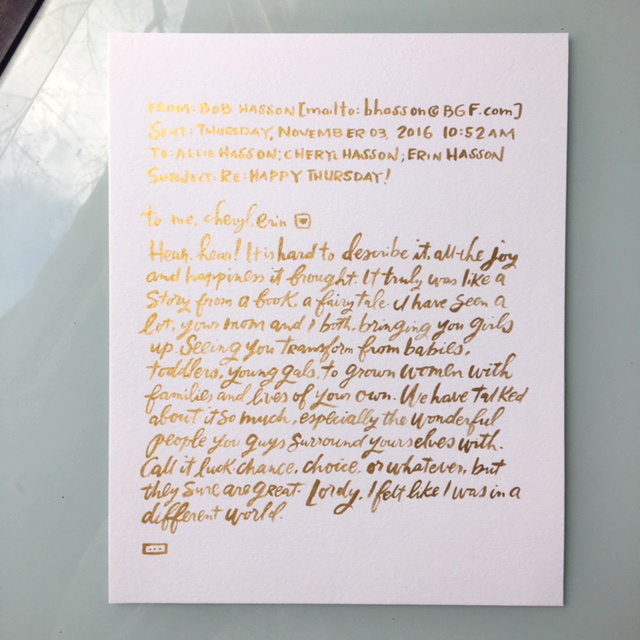 FROM: BOB HASSON [mailto: bhasson@BGF.com]
SENT: THURSDAY, NOVEMBER 03, 2016 10:52AM
TO: ALLIE HASSON; CHERYL HASSON; ERIN HASSON
SUBJECT: RE: HAPPY THURSDAY!
to me, cheryl, erin
Hear, hear! It is hard to describe it, all the joy
and happiness it brought. It truly was like a
story from a book, a fairytale. I have seen a
lot, your mom and I both, bringing you girls
up. Seeing you transform from babies,
toddlers, young gals, to grown women with
families and lives of your own. We have talked
about it so much, especially the wonderful
people you guys surround yourselves with.
Call it luck, chance, choice, or whatever, but
they sure are great. Lordy, I felt like I was in a
different world.
...